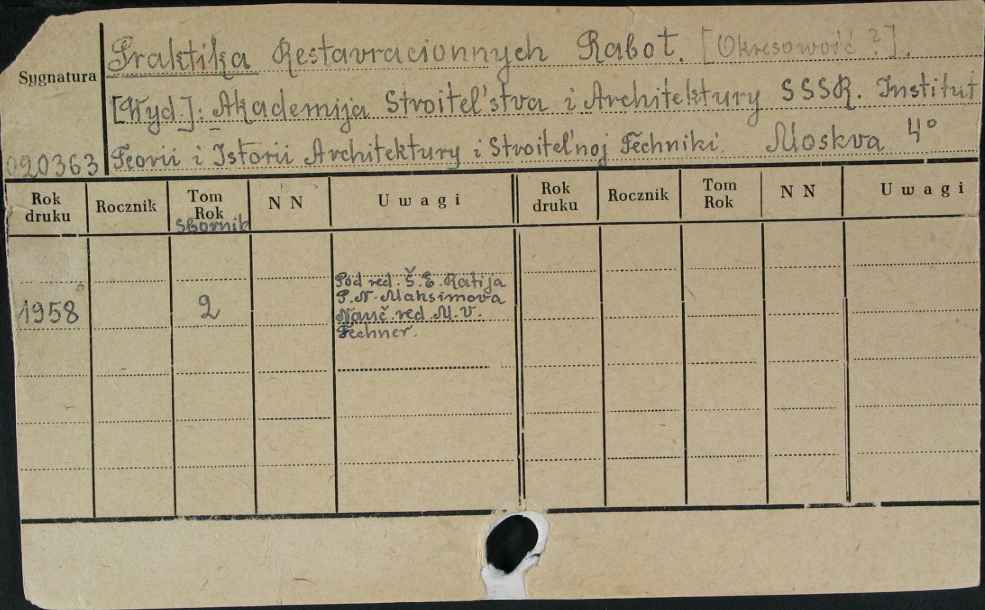 Praktika Restavracionnych Rabot. [Okresowość ?].
Sygnatura
[Wyd.]: Akademija Stroitel'stva i Architektury SSSR. Institut
020363 Teorii i Istorii Architektury i Stroitel'noj Techniki. Moskva 4°
Rok druku Rocznik Tom Rok NN Uwagi Rok druku Rocznik Tom Rok NN Uwagi
Sbornik
Pod red. Š. E. Ratija
1958 2 P. N. Maksimova
Nauč. red M. V.
Fechner.